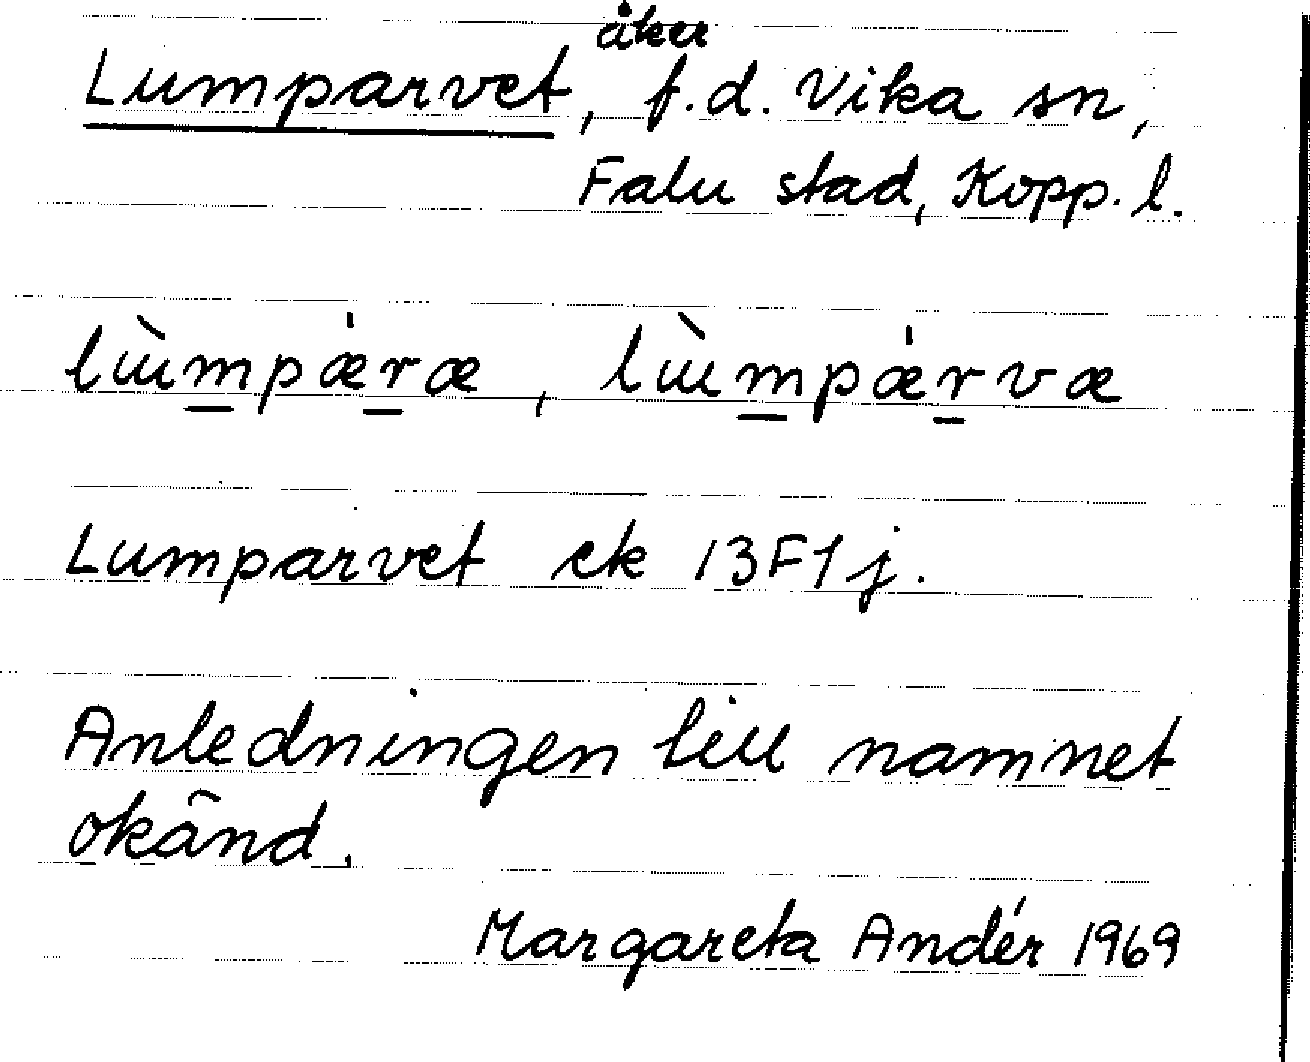 åker
Lumparvet, f.d. Vika sn,
Falu stad, Kopp. l.
lùmpǽræ, lùmpǽrvæ
Lumparvet ek 13F1j.
Anledningen till namnet
okänd.
Margareta Andér 1969